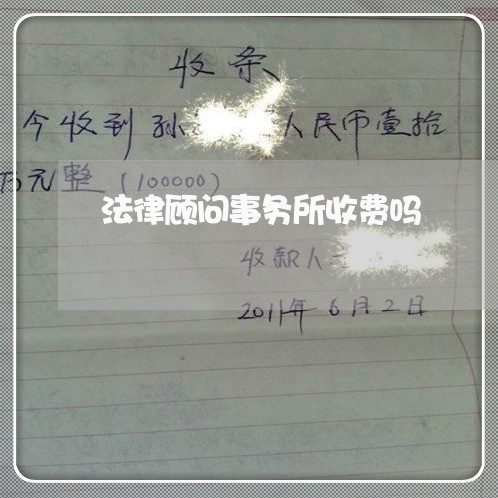 收条
今收到孙 人民币壹拾
万元整(100000)
法律顾问事务所收费吗
收款人
2011年6月2日